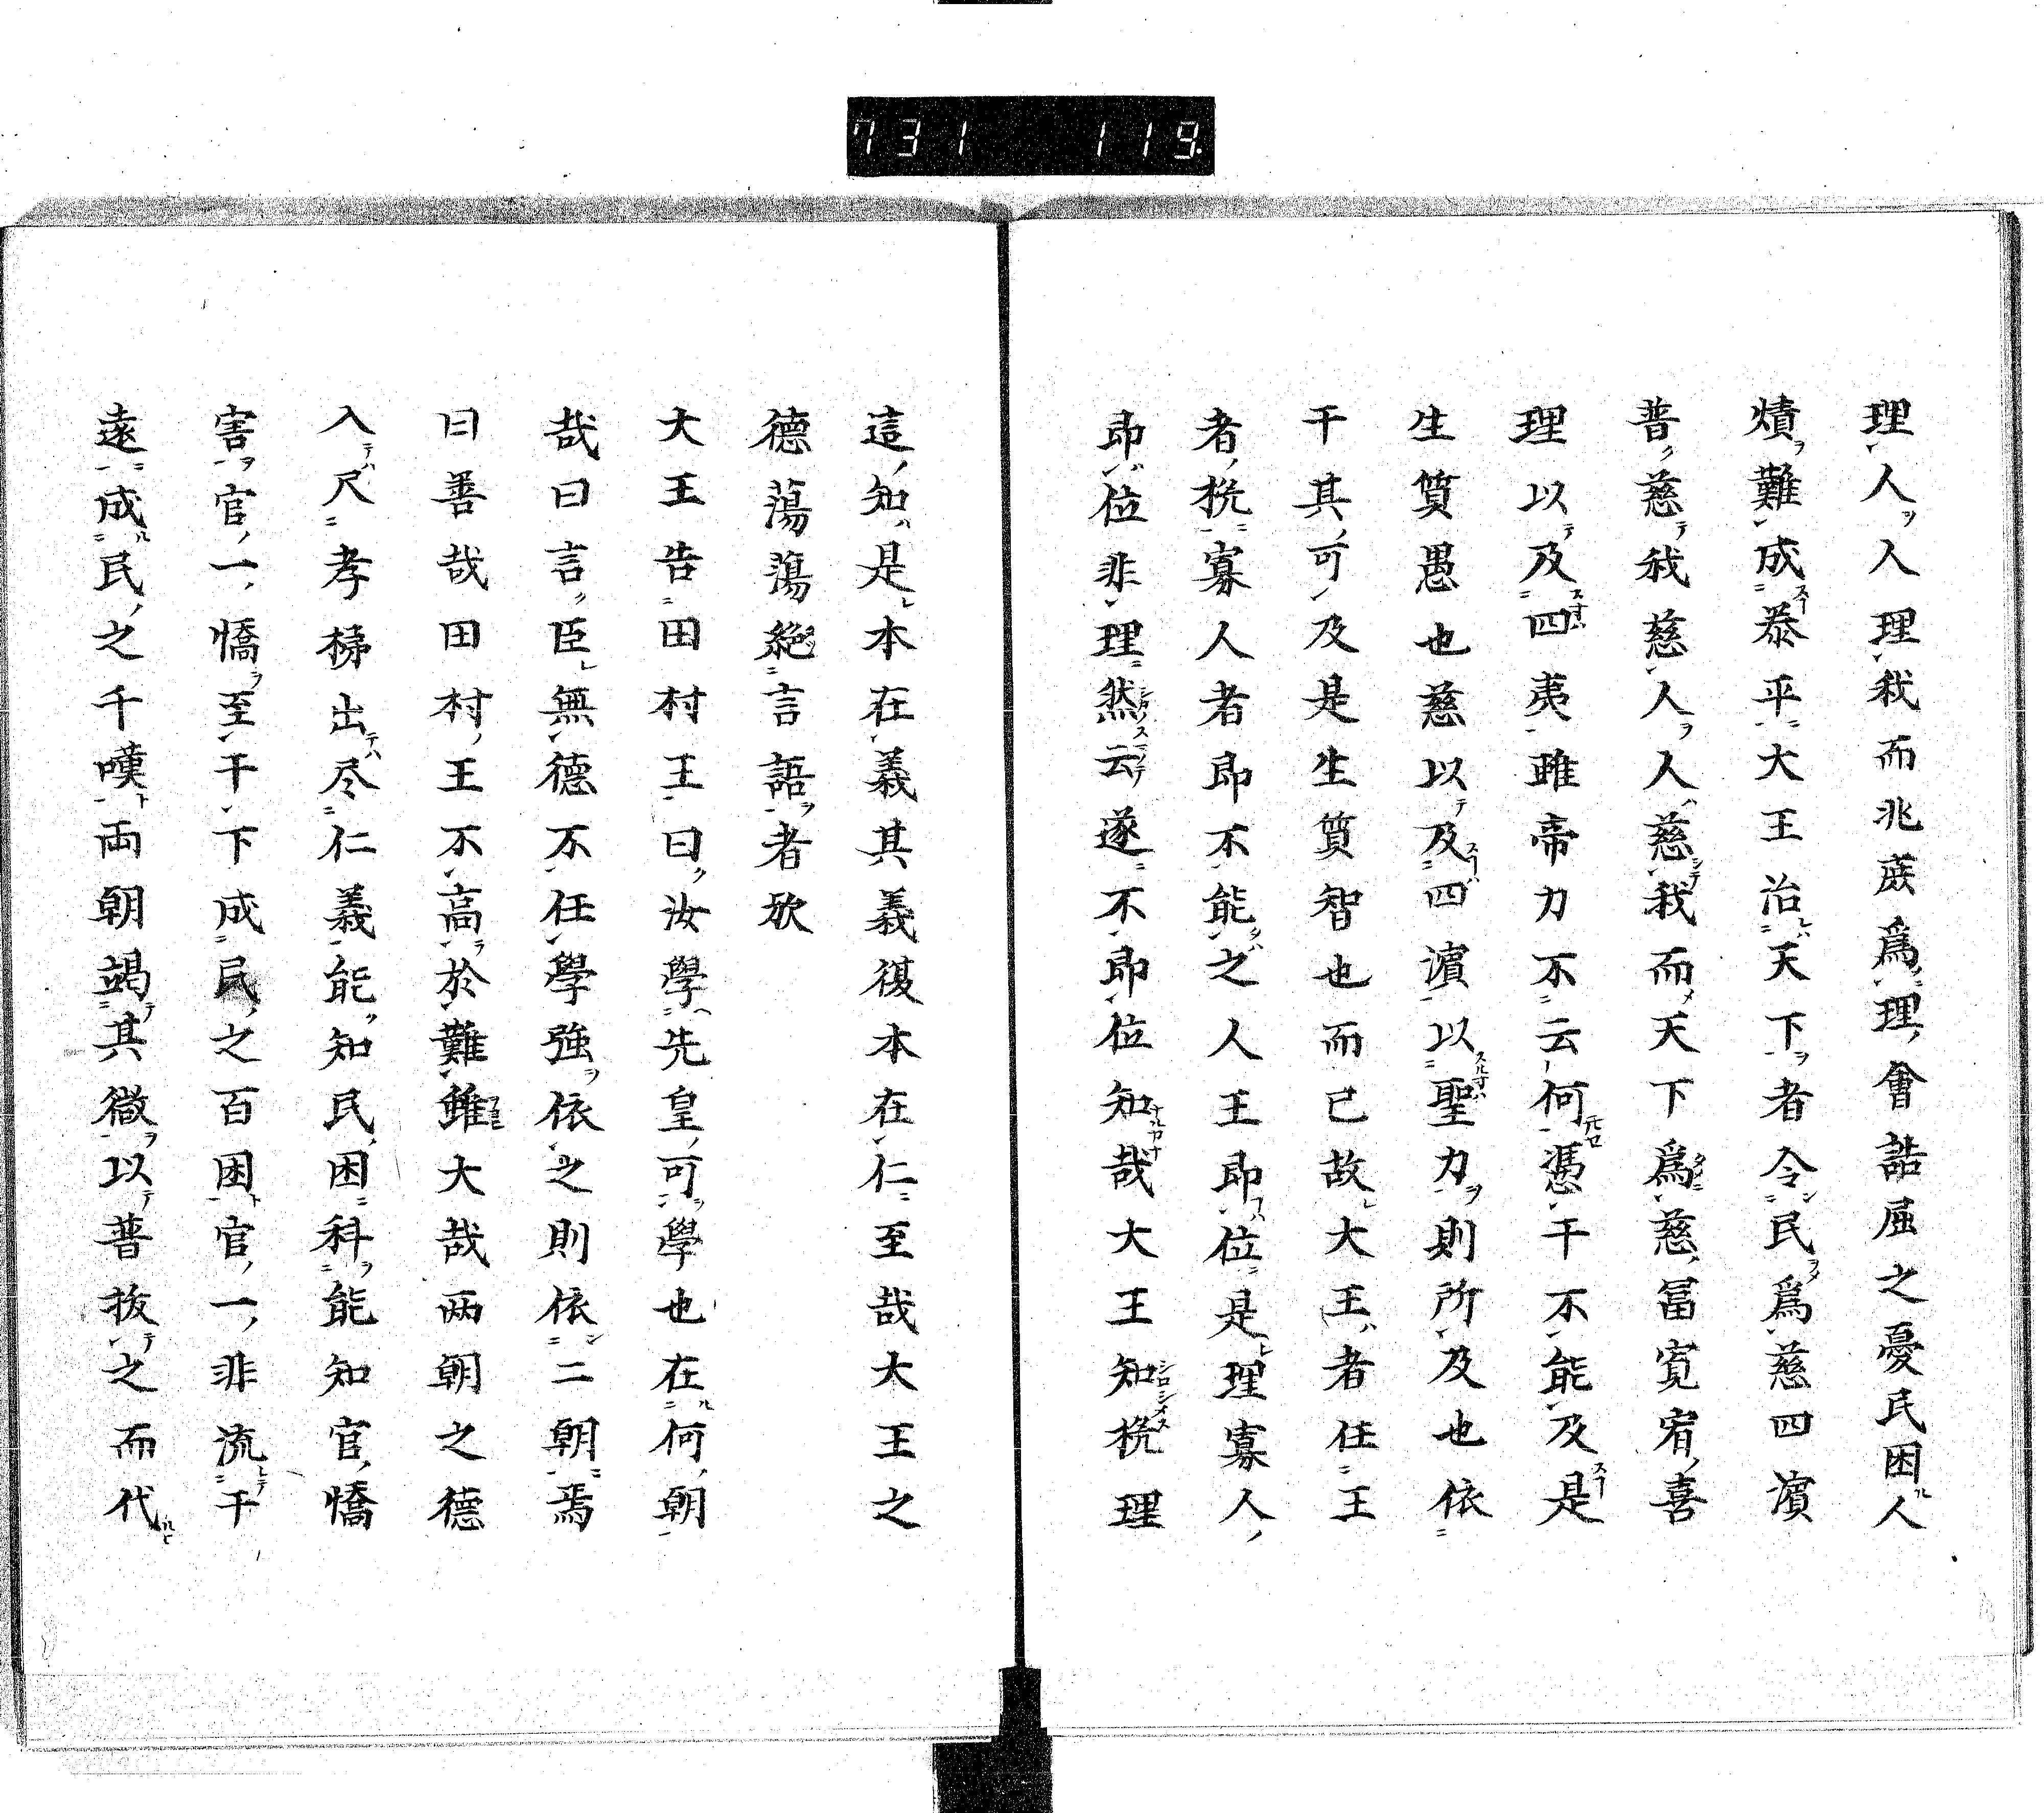 731 119
理人人理我而兆蔟為理會誥屈之憂民困人
燌難成泰平大王治天下者令民為慈四濵
普慈我慈人人慈我而天下為慈冨寛宥喜
理以及四夷雖帝力不云何憑干不能及是
生質愚也慈以及四濵以聖力則所及也依
干其可及是生質智也而已故大王者任王
者挽寡人者即不能之人王即位是理寡人
即位非理然云遂不即位知哉大王知挽理
這知是本在義其義復本在仁至哉大王之
德蕩蕩絶言語者欤
大王告田村王曰汝學先皇可學也在何朝
哉曰言臣無德不任學強依之則依二朝焉
曰善哉田村王不高於難雖大哉两朝之德
入尺孝梯出尽仁義能知民困科能知官憍
害官一憍至干下成民之百困官一非流干
遠成民之千嘆両朝竭其徴以普拔之而代